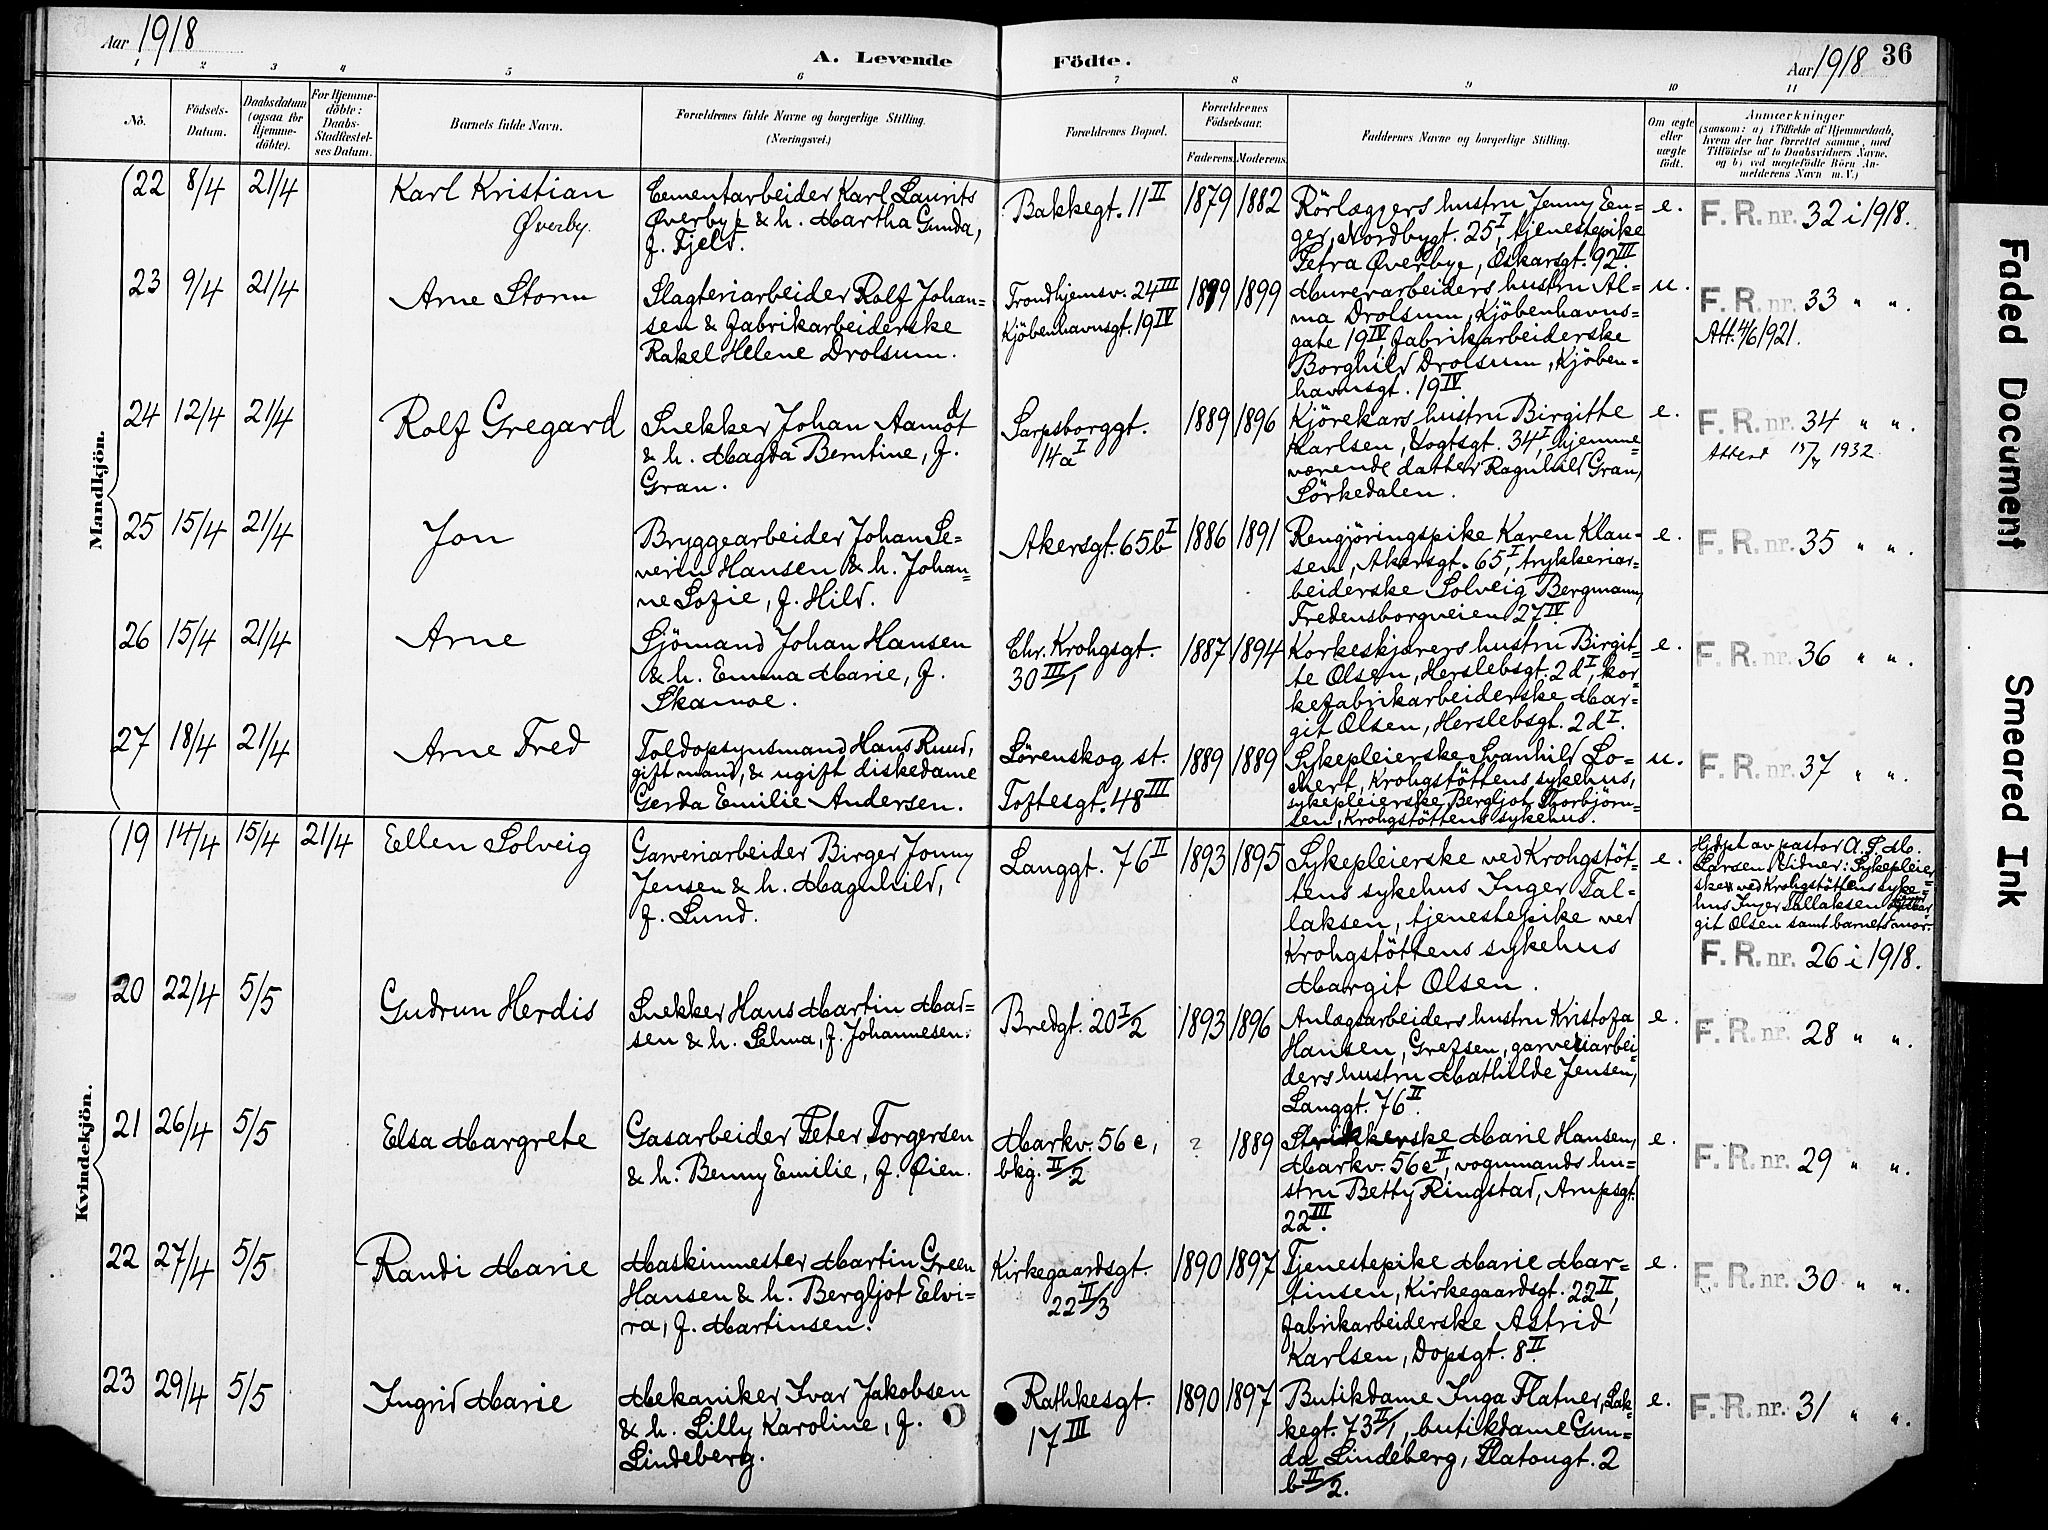 Aar 1918
A. Levende
Födte.
Aar 1918
36
1 2 3 4 5 6 7 8 9 10 11
Nö.
Födsels-
Datum.
Daabsdatum
(ogsaa for
Hjemme-
döbte).
For Hjemme-
döbte:
Daabs-
Stadfæstel-
ses Datum.
Barnets fulde Navn.
Forældrenes fulde Navne og borgerlige Stilling.
(Næringsvei.)
Forældrenes Bopæl.
Forældrenes
Födselsaar.
Faderens. Moderens.
Faddernes Navne og borgerlige Stilling.
Om ægte
eller
uægte
födt.
Anmærkninger
(saasom: a) i Tilfælde af Hjemmedaab,
hvem der har forrettet samme, med
Tilföielse af to Daabsvidners Navne,
og b) ved uægtefödte Börn An-
melderens Navn m. V.)
Mandkjön.
22 8/4 21/4
Karl Kristian
Øverby.
Cementarbeider Karl Laurits
Øverbye & h. Martha Gunda,
f. Fjeld.
Bakkegt. 11 II
1879 1882
Rörlæggers hustru Jenny Een-
ger, Nordbygt. 25 I, tjenestepike
Petra Øverbye, Oskarsgt. 92 III.
e.
F. R. nr. 32 i 1918.
23 9/4 21/4
Arne Storm
Slagteriarbeider Rolf Johan-
sen & fabrikarbeiderske
Rakel Helene Drolsum.
Trondhjemsv. 24 III
Kjöbenhavnsgt. 19 IV
1899 1899
Murerarbeiders hustru Al-
ma Drolsum, Kjöbenhavns-
gate 19 IV, fabrikarbeiderske
Borghild Drolsum, Kjöben-
havnsgt. 19 IV.
u.
F. R. nr. 33 " ".
Att. 4/6 1921.
24 12/4 21/4
Rolf Gregard
Snekker Johan Aamodt
& h. Magda Berntine, f.
Gran.
Sarpsborggt.
14a I
1889 1896
Kjörekars hustru Birgitte
Karlsen, Vogtsgt. 34 I, hjemme-
værende datter Ragnhild Gran,
Sörkedalen.
e.
F. R. nr. 34 " ".
Attest 15/7 1932.
25 15/4 21/4
Jon
Bryggearbeider Johan Se-
verin Hansen & h. Johan-
ne Sofie, f. Hild.
Akersgt. 65b I
1886 1891
Rengjöringspike Karen Klau-
sen, Akersgt. 65 I, trykkeriar-
beiderske Solveig Bergmann,
Fredensborgveien 27 IV.
e.
F. R. nr. 35 " ".
26 15/4 21/4
Arne
Sjömand Johan Hansen
& h. Emma Marie, f.
Skamoe.
Chr. Krohgsgt.
30 III/1
1887 1894
Korkeskjærers hustru Birgit-
te Olsen, Herslebsgt. 2d I, kor-
kefabrikarbeiderske Mar-
git Olsen, Herslebsgt. 2d I.
e.
F. R. nr. 36 " ".
27 18/4 21/4
Arne Fred
Toldopsynsmand Hans Ruud,
gift mand, & ugift diskedame
Gerda Emilie Andersen.
Lörenskog st.
Toftesgt. 48 III
1889 1889
Sykepleierske Svanhild Lo-
chert, Krohgstöttens sykehus,
sykepleierske Bergljot Thorbjörn-
sen, Krohgstöttens sykehus.
u.
F. R. nr. 37 " ".
Kvindekjön.
19 14/4 15/4 21/4
Ellen Solveig
Garveriarbeider Birger Jonny
Jensen & h. Magnhild,
f. Lund.
Langgt. 76 II
1893 1895
Sykepleierske ved Krohgstöt-
tens sykehus Inger Tal-
laksen, tjenestepike ved
Krohgstöttens sykehus
Margit Olsen.
e.
Hjdpt av pastor A. P. M.
Larsen. Vidner: Sykepleier-
sken ved Krohgstöttens syke-
hus Inger Tallaksen Mar-
git Olsen samt barnets mor.
F. R. nr. 26 i 1918.
20 22/4 5/5
Gudrun Herdis
Snekker Hans Martin Mad-
sen & h. Selma, f. Johannesen.
Bredgt. 20 I/2
1893 1896
Anlægsarbeiders hustru Kristofa
Hansen, Grefsen, garveriarbei-
ders hustru Mathilde Jensen,
Langgt. 76 II.
e.
F. R. nr. 28 " ".
21 26/4 5/5
Elsa Margrete
Gasarbeider Peter Torgersen
& h. Benny Emilie, f. Øien.
Markv. 56 c,
bkg. II/2
? 1889
Strikkerske Marie Hansen,
Markv. 56c II, vognmands hu-
stru Betty Ringstad, Arupsgt.
22 III.
e.
F. R. nr. 29 " ".
22 27/4 5/5
Randi Marie
Maskinmester Martin Green
Hansen & h. Bergljot Elvi-
ra, f. Martinsen.
Kirkegaardsgt.
22 II/3
1890 1897
Tjenestepike Marie Mar-
tinsen, Kirkegaardsgt. 22 II,
fabrikarbeiderske Astrid
Karlsen, Dopsgt. 8 II.
e.
F. R. nr. 30 " ".
23 29/4 5/5
Ingrid Marie
Mekaniker Ivar Jakobsen
& h. Lilly Karoline, f.
Lindeberg.
Rathkesgt.
17 III
1890 1897
Butikdame Inga Flatner, Lak-
kegt. 73 I/1, butikdame Gun-
da Lindeberg, Platougt. 2
b II/2.
e.
F. R. nr. 31 " ".
Faded Document
Smeared Ink